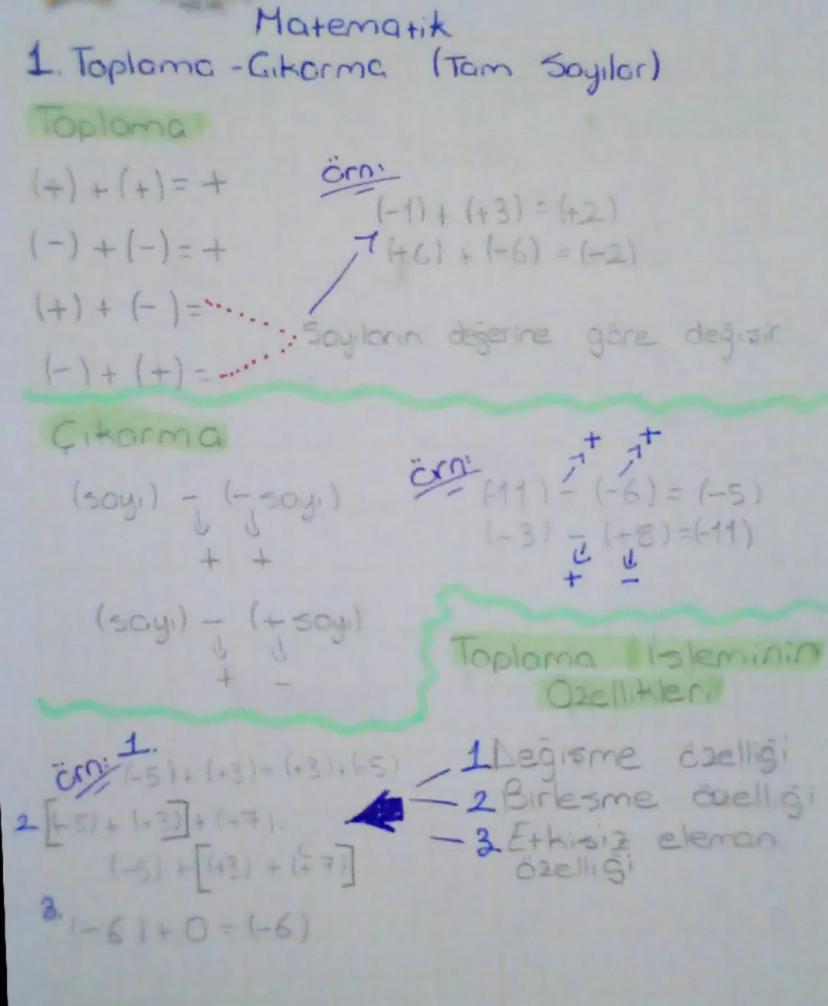 Matematik
1. Toplama - Çıkarma (Tam Sayılar)
Toplama
(+) + (+) = +
(-) + (-) = +
(+) + (-) =
(-) + (+) =
Örn:
(-1) + (+3) = (+2)
+ (-6) = (-2)
Sayıların değerine göre değişir
Çıkarma
(sayı) - (-sayı)
+ +
(sayı) - (+sayı)
+ -
Örn:
+ +
(-11) - (-6) = (-5)
(-3) - (+8) = (-11)
+ -
Toplama İşleminin
Özellikleri
1 Değişme özelliği
2 Birleşme özelliği
3. Etkisiz eleman
özelliği
Örn: 1. (-5) + (+3) = (+3) + (-5)
2 [(-5) + (+3)] + (+7) =
(-5) + [(+3) + (+7)]
3. (-6) + 0 = (-6)